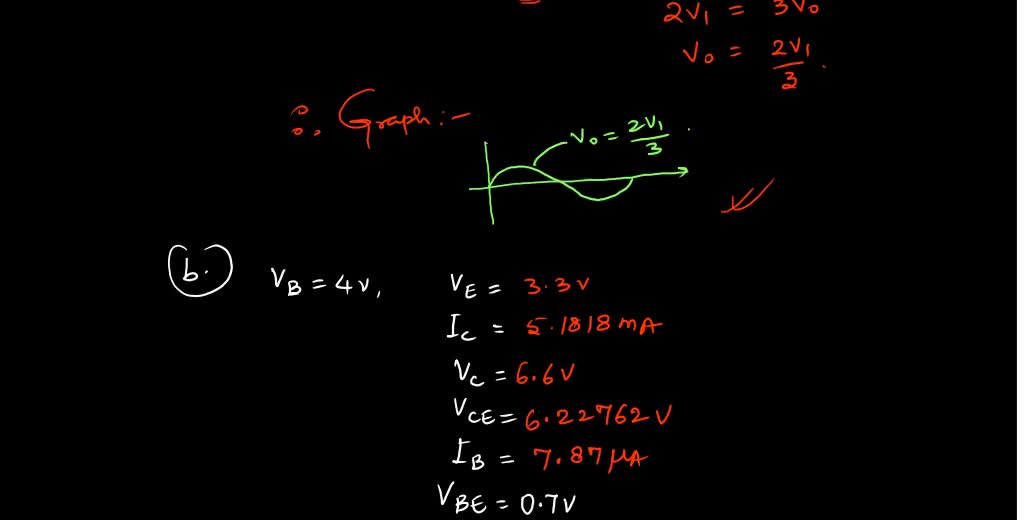 2V₁ = 3V₀
V₀ = 2V₁/3.
∴ Graph:-
V₀ = 2V₁/3.
b.
V_B = 4v,
V_E = 3.3v
I_c = 5.1818mA
V_c = 6.6V
V_CE = 6.22762V
I_B = 7.87μA
V_BE = 0.7V